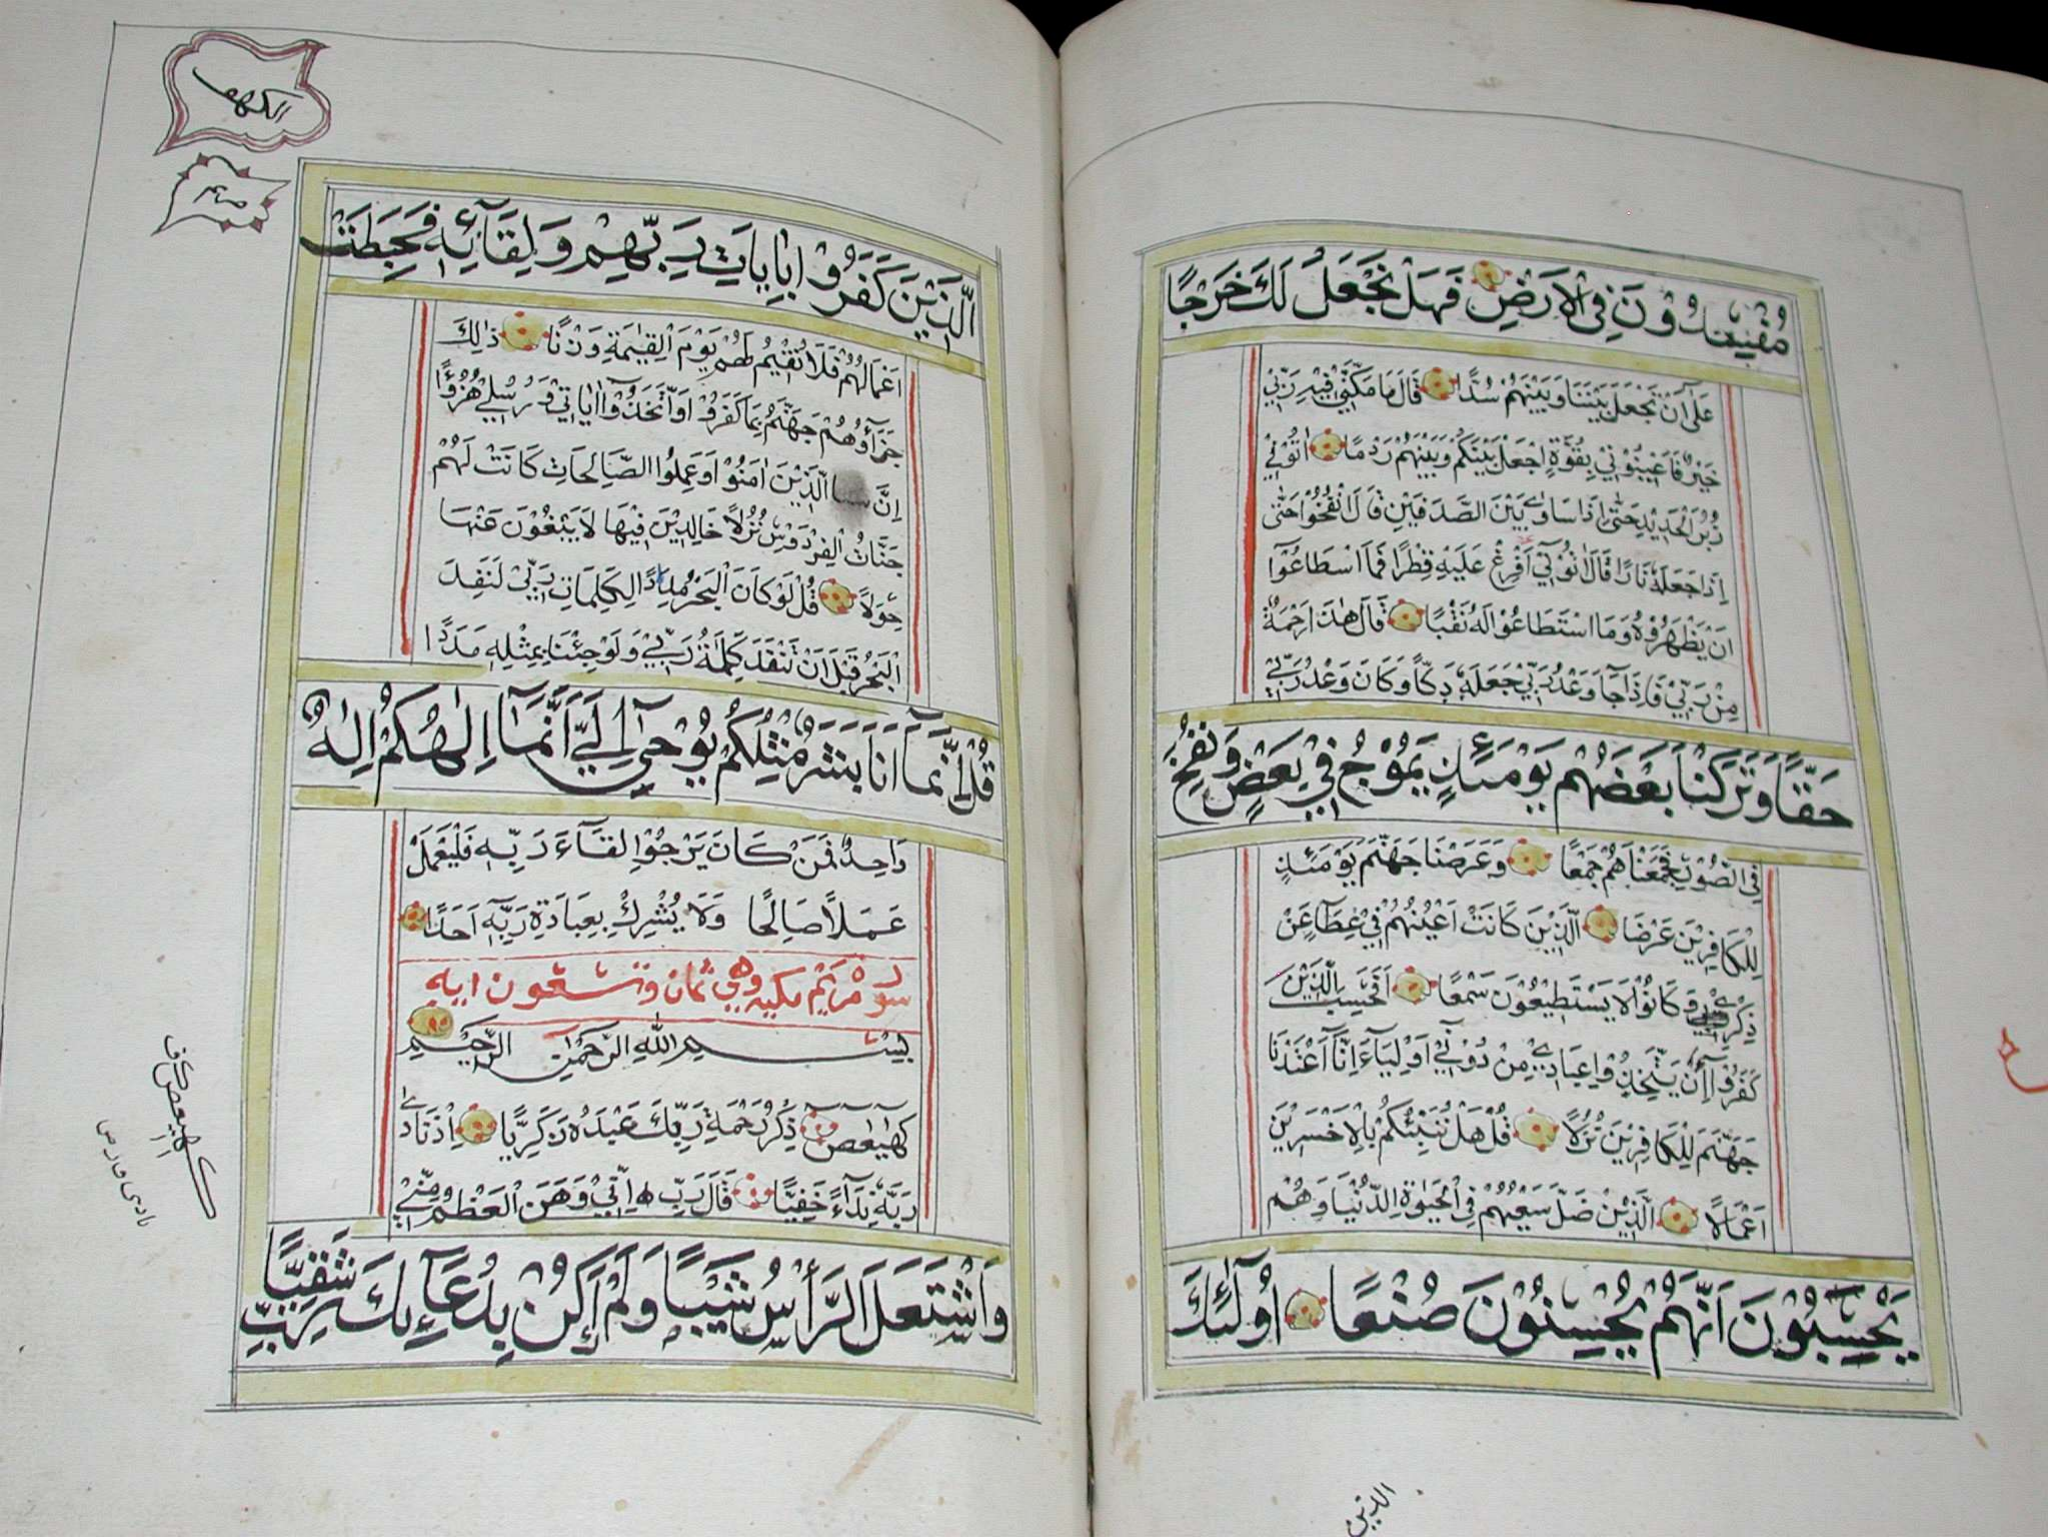 مُفْسِدُوْنَ فِي الْاَرْضِ فَهَلْ نَجْعَلُ لَكَ خَرْجًا
عَلٰى اَنْ تَجْعَلَ بَيْنَنَا وَبَيْنَهُمْ سُدًّا قَالَ مَا مَكَّنِّيْ فِيْهِ رَبِّيْ
خَيْرٌ فَاَعِيْنُوْنِيْ بِقُوَّةٍ اَجْعَلْ بَيْنَكُمْ وَبَيْنَهُمْ رَدْمًا اٰتُوْنِيْ
زُبُرَ الْحَدِيْدِ حَتّٰى اِذَا سَاوٰى بَيْنَ الصَّدَفَيْنِ قَالَ انْفُخُوْا حَتّٰى
اِذَا جَعَلَهٗ نَارًا قَالَ اٰتُوْنِيْ اُفْرِغْ عَلَيْهِ قِطْرًا فَمَا اسْطَاعُوْا
اَنْ يَظْهَرُوْهُ وَمَا اسْتَطَاعُوْا لَهُ نَقْبًا قَالَ هٰذَا رَحْمَةٌ
مِنْ رَبِّيْ فَاِذَا جَآ وَعْدُ رَبِّيْ جَعَلَهٗ دَكّاً وَكَانَ وَعْدُ رَبِّيْ
حَقًّا وَتَرَكْنَا بَعْضَهُمْ يَوْمَئِذٍ يَمُوْجُ فِيْ بَعْضٍ وَنُفِخَ
فِي الصُّوْرِ فَجَمَعْنَاهُمْ جَمْعًا وَعَرَضْنَا جَهَنَّمَ يَوْمَئِذٍ
لِلْكَافِرِيْنَ عَرْضَا الَّذِيْنَ كَانَتْ اَعْيُنُهُمْ فِيْ غِطَآءٍ عَنْ
ذِكْرِيْ وَكَانُوْا لَا يَسْتَطِيْعُوْنَ سَمْعًا اَفَحَسِبَ الَّذِيْنَ
كَفَرُوْا اَنْ يَتَّخِذُوْا عِبَادِيْ مِنْ دُوْنِيْ اَوْلِيَآءَ اِنَّآ اَعْتَدْنَا
جَهَنَّمَ لِلْكَافِرِيْنَ نُزُلًا قُلْ هَلْ نُنَبِّئُكُمْ بِالْاَخْسَرِيْنَ
اَعْمَالًا الَّذِيْنَ ضَلَّ سَعْيُهُمْ فِي الْحَيٰوةِ الدُّنْيَا وَهُمْ
يَحْسَبُوْنَ اَنَّهُمْ يُحْسِنُوْنَ صُنْعًا اُولٰٓئِكَ
الذين
الكهف
الَّذِيْنَ كَفَرُوْا بِاٰيَاتِ رَبِّهِمْ وَلِقَآئِهٖ فَحَبِطَتْ
اَعْمَالُهُمْ فَلَا نُقِيْمُ لَهُمْ يَوْمَ الْقِيٰمَةِ وَزْنًا ذٰلِكَ
جَزَآؤُهُمْ جَهَنَّمُ بِمَا كَفَرُوْا وَاتَّخَذُوْآ اٰيَاتِيْ وَرُسُلِيْ هُزُؤًا
اِنَّ الَّذِيْنَ اٰمَنُوْا وَعَمِلُوا الصَّالِحَاتِ كَانَتْ لَهُمْ
جَنَّاتُ الْفِرْدَوْسِ نُزُلًا خَالِدِيْنَ فِيْهَا لَا يَبْغُوْنَ عَنْهَا
حِوَلًا قُلْ لَوْ كَانَ الْبَحْرُ مِدَادًا لِكَلِمَاتِ رَبِّيْ لَنَفِدَ
الْبَحْرُ قَبْلَ اَنْ تَنْفَدَ كَلِمَاتُ رَبِّيْ وَلَوْ جِئْنَا بِمِثْلِهٖ مَدَدًا
قُلْ اِنَّمَآ اَنَا بَشَرٌ مِثْلُكُمْ يُوْحٰٓى اِلَيَّ اَنَّمَآ اِلٰهُكُمْ اِلٰهٌ
وَاحِدٌ فَمَنْ كَانَ يَرْجُوْا لِقَآءَ رَبِّهٖ فَلْيَعْمَلْ
عَمَلًا صَالِحًا وَلَا يُشْرِكْ بِعِبَادَةِ رَبِّهٖ اَحَدًا
سورة مريم مكيه وهي ثمان وتسعون ايه
بِسْمِ اللّٰهِ الرَّحْمٰنِ الرَّحِيْمِ
كهيعص ذِكْرُ رَحْمَةِ رَبِّكَ عَبْدَهُ زَكَرِيَّا اِذْ نَادٰى
رَبَّهٗ نِدَآءً خَفِيًّا قَالَ رَبِّ اِنِّيْ وَهَنَ الْعَظْمُ مِنِّيْ
وَاشْتَعَلَ الرَّأْسُ شَيْبًا وَلَمْ اَكُنْ بِدُعَآئِكَ رَبِّ شَقِيًّا
كهيعص